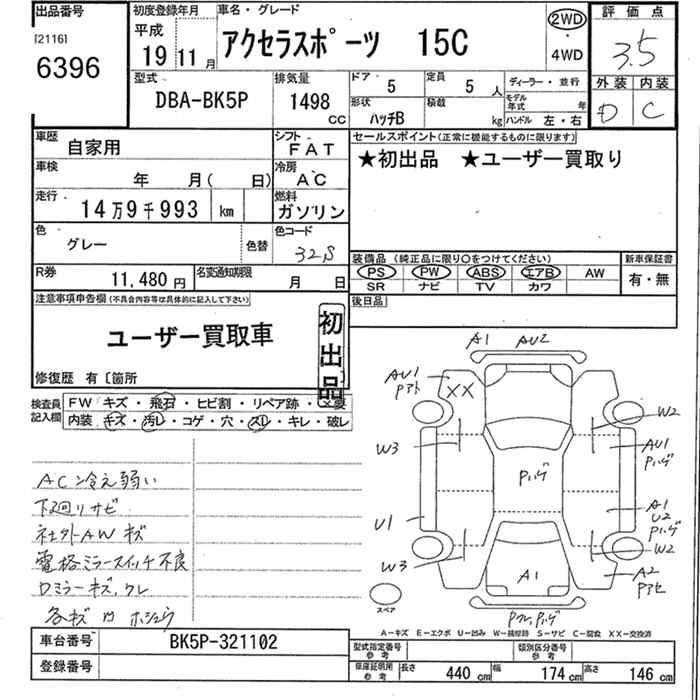 出品番号
[2116]
6396
初度登録年月
平成
19 11 月
車名・グレード
アクセラスポーツ 15C
2WD
・
4WD
評価点
3.5
外装 内装
D C
型式
DBA-BK5P
排気量
1498
CC
ドア・
5
定員
5 人
形状
ハッチB
積載
kg
ディーラー・並行
モデル年式 年
ハンドル 左・右
車歴
自家用
シフト
FAT
セールスポイント(正常に機能するものに限ります)
★初出品 ★ユーザー買取り
車検
年 月( 日)
冷房
AC
走行
14万9千993 km
燃料
ガソリン
色
グレー
色替
色コード
32S
装備品(純正品に限り○をつけてください)
新車保証書
PS PW ABS エアB AW
有・無
SR ナビ TV カワ
R券
11,480 円
名変通知期限
月 日
後日品
注意事項申告欄(不具合内容等は具体的に記入して下さい)
ユーザー買取車
初出品
修復歴 有〔箇所
検査員記入欄
FW キズ・飛石・ヒビ割・リペア跡・X要
内装 キズ・汚レ・コゲ・穴・スレ・キレ・破レ
AC冷え弱い
下廻りサビ
社外AWキズ
電格ミラースイッチ不良
ロミラーキズ,クレ
各キズ凹ホシュウ
A1 AU2
AU1
Pアト
XX
W2
W3
AU1
Pハゲ
Pハゲ
A1
U2
Pハゲ
U1
W3
W2
A1
A2
Pアセ
スペア
A－キズ E－エクボ U－凹み W－補修跡 S－サビ C－腐食 XX－交換済
車台番号
BK5P-321102
型式指定番号
参考
類別区分番号
参考
登録番号
車庫証明用
参考
長さ 440 cm 幅 174 cm 高さ 146 cm